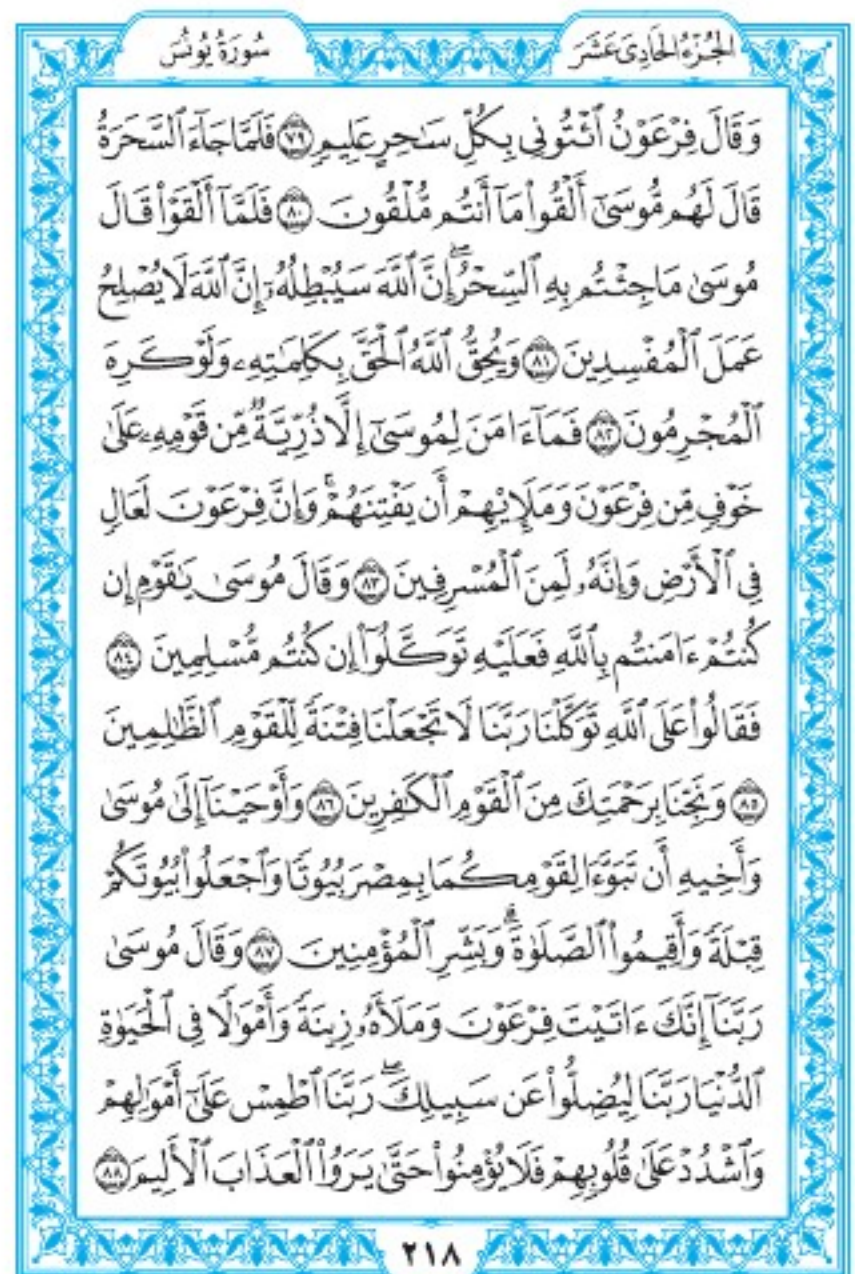 الجُزْءُ الحَادِىَ عَشَرَ
سُورَةُ يُونُسَ
وَقَالَ فِرْعَوْنُ ٱئْتُونِى بِكُلِّ سَٰحِرٍ عَلِيمٍ ٧٩ فَلَمَّا جَآءَ ٱلسَّحَرَةُ
قَالَ لَهُم مُّوسَىٰٓ أَلْقُوا۟ مَآ أَنتُم مُّلْقُونَ ٨٠ فَلَمَّآ أَلْقَوْا۟ قَالَ
مُوسَىٰ مَا جِئْتُم بِهِ ٱلسِّحْرُ ۖ إِنَّ ٱللَّهَ سَيُبْطِلُهُۥٓ إِنَّ ٱللَّهَ لَا يُصْلِحُ
عَمَلَ ٱلْمُفْسِدِينَ ٨١ وَيُحِقُّ ٱللَّهُ ٱلْحَقَّ بِكَلِمَٰتِهِۦ وَلَوْ كَرِهَ
ٱلْمُجْرِمُونَ ٨٢ فَمَآ ءَامَنَ لِمُوسَىٰٓ إِلَّا ذُرِّيَّةٌ مِّن قَوْمِهِۦ عَلَىٰ
خَوْفٍ مِّن فِرْعَوْنَ وَمَلَإِي۟هِمْ أَن يَفْتِنَهُمْ ۚ وَإِنَّ فِرْعَوْنَ لَعَالٍ
فِى ٱلْأَرْضِ وَإِنَّهُۥ لَمِنَ ٱلْمُسْرِفِينَ ٨٣ وَقَالَ مُوسَىٰ يَٰقَوْمِ إِن
كُنتُمْ ءَامَنتُم بِٱللَّهِ فَعَلَيْهِ تَوَكَّلُوٓا۟ إِن كُنتُم مُّسْلِمِينَ ٨٤
فَقَالُوا۟ عَلَى ٱللَّهِ تَوَكَّلْنَا رَبَّنَا لَا تَجْعَلْنَا فِتْنَةً لِّلْقَوْمِ ٱلظَّٰلِمِينَ
٨٥ وَنَجِّنَا بِرَحْمَتِكَ مِنَ ٱلْقَوْمِ ٱلْكَٰفِرِينَ ٨٦ وَأَوْحَيْنَآ إِلَىٰ مُوسَىٰ
وَأَخِيهِ أَن تَبَوَّءَا لِقَوْمِكُمَا بِمِصْرَ بُيُوتًا وَٱجْعَلُوا۟ بُيُوتَكُمْ
قِبْلَةً وَأَقِيمُوا۟ ٱلصَّلَوٰةَ ۗ وَبَشِّرِ ٱلْمُؤْمِنِينَ ٨٧ وَقَالَ مُوسَىٰ
رَبَّنَآ إِنَّكَ ءَاتَيْتَ فِرْعَوْنَ وَمَلَأَهُۥ زِينَةً وَأَمْوَٰلًا فِى ٱلْحَيَوٰةِ
ٱلدُّنْيَا رَبَّنَا لِيُضِلُّوا۟ عَن سَبِيلِكَ ۖ رَبَّنَا ٱطْمِسْ عَلَىٰٓ أَمْوَٰلِهِمْ
وَٱشْدُدْ عَلَىٰ قُلُوبِهِمْ فَلَا يُؤْمِنُوا۟ حَتَّىٰ يَرَوُا۟ ٱلْعَذَابَ ٱلْأَلِيمَ ٨٨
٢١٨